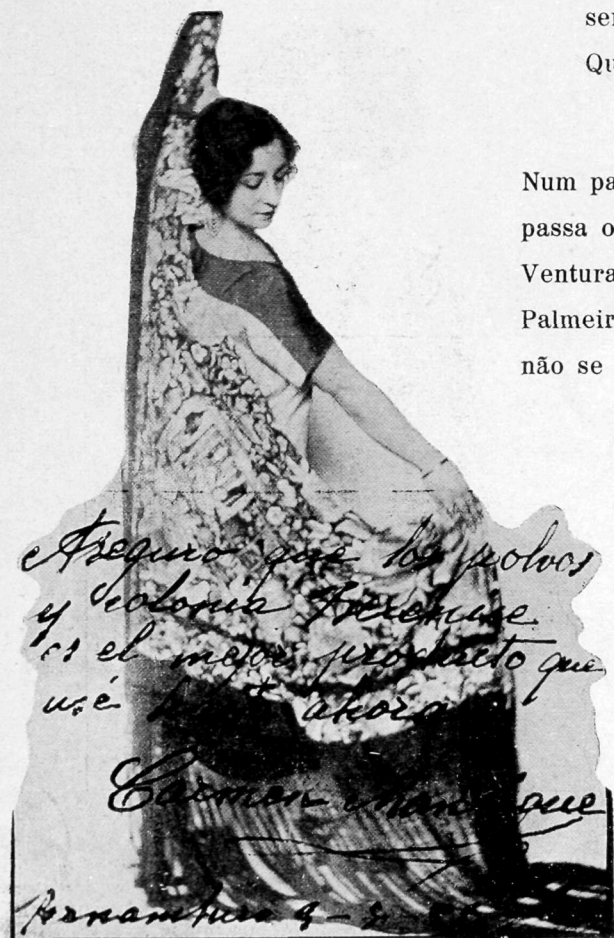 ser
Qu
Num pa
passa o
Ventura
Palmeir
não se
Aseguro que los polvos
y colonia
es el mejor producto que
usé ahora
Carmen
Pernambuco